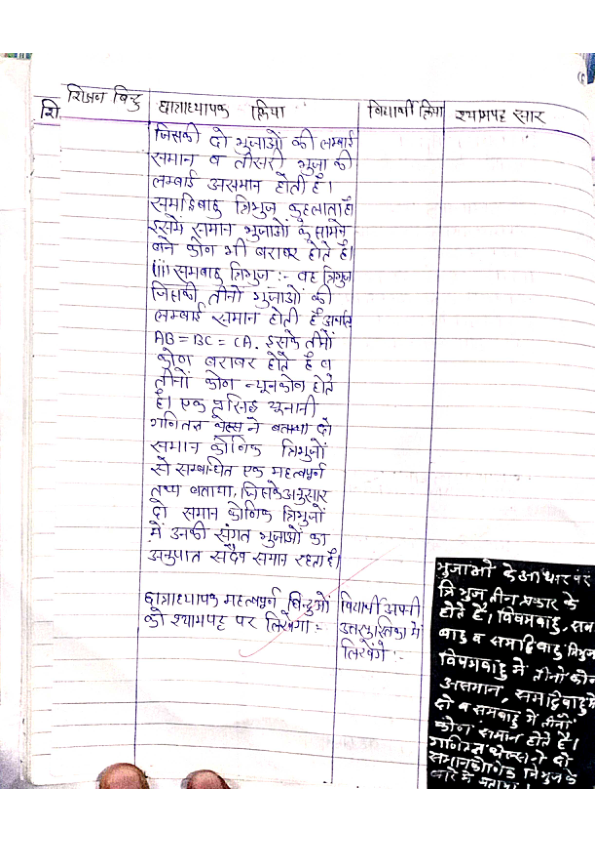 शि
शिक्षण बिन्दु
छात्राध्यापक क्रिया
विद्यार्थी क्रिया
श्यामपट्ट सार
जिसकी दो भुजाओं की लम्बाई
समान व तीसरी भुजा की
लम्बाई असमान होती है।
समद्विबाहु त्रिभुज कहलाता है।
इसमें समान भुजाओं के सामने
बने कोण भी बराबर होते है।
(iii) समबाहु त्रिभुज :- वह त्रिभुज
जिसकी तीनों भुजाओं की
लम्बाई समान होती है अर्थात
AB = BC = CA. इसके तीनों
कोण बराबर होते है व
तीनों कोण न्यूनकोण होते
है। एक प्रसिद्ध यूनानी
गणितज्ञ थेल्स ने बताया दो
समान कोणिक त्रिभुजों
से सम्बन्धित एक महत्वपूर्ण
तथ्य बताया, जिसके अनुसार
दो समान कोणिक त्रिभुजों
में उनकी संगत भुजाओं का
अनुपात सदैव समान रहता है।
छात्राध्यापक महत्वपूर्ण बिन्दुओ
को श्यामपट्ट पर लिखेगा :-
विद्यार्थी अपनी
उत्तरपुस्तिका में
लिखेंगे :-
भुजाओं के आधार पर
त्रिभुज तीन प्रकार के
होते है। विषमबाहु, सम
बाहु व समद्विबाहु त्रिभुज
विषमबाहु में तीनों कोन
असमान, समद्विबाहु मे
दो व समबाहु में तीनों
कोण समान होते है।
गणितज्ञ थेल्स ने दो
समानकोणिक त्रिभुज के
बारे में बताया।